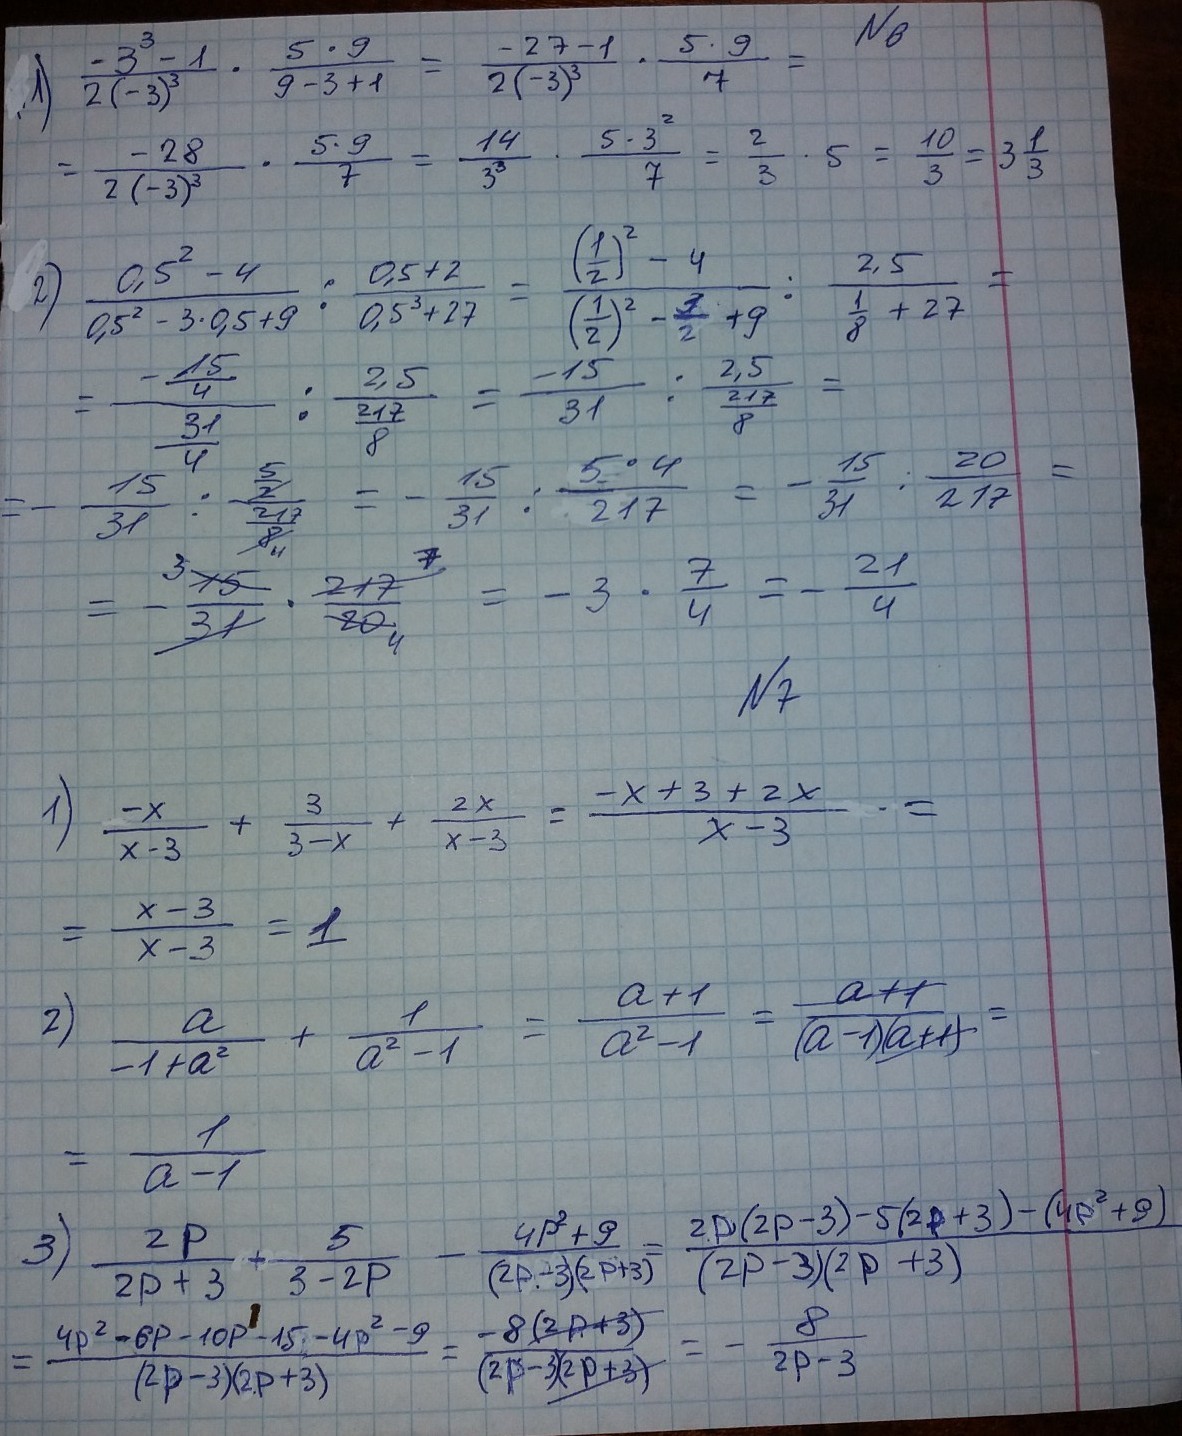 N6
1) (-3³-1)/(2(-3)³) · (5·9)/(9-3+1) = (-27-1)/(2(-3)³) · (5·9)/7 =
= (-28)/(2(-3)³) · (5·9)/7 = 14/3³ · (5·3²)/7 = 2/3 · 5 = 10/3 = 3 1/3
2) (0,5²-4)/(0,5²-3·0,5+9) : (0,5+2)/(0,5³+27) = ((1/2)²-4)/((1/2)²-3/2+9) : 2,5/(1/8+27) =
= (-15/4)/(31/4) : 2,5/(217/8) = -15/31 : 2,5/(217/8) =
= - 15/31 : (5/2)/(217/8) 4 = - 15/31 : (5·4)/217 = - 15/31 : 20/217 =
= - 3 15/31 · 217/20 7 4 = -3 · 7/4 = - 21/4
N7
1) -x/(x-3) + 3/(3-x) + 2x/(x-3) = (-x+3+2x)/(x-3) · =
= (x-3)/(x-3) = 1
2) a/(-1+a²) + 1/(a²-1) = (a+1)/(a²-1) = (a+1)/((a-1)(a+1)) =
= 1/(a-1)
3) 2p/(2p+3) + 5/(3-2p) - (4p²+9)/((2p-3)(2p+3)) = (2p(2p-3)-5(2p+3)-(4p²+9))/((2p-3)(2p+3))
= (4p²-6p-10p-15-4p²-9)/((2p-3)(2p+3)) = (-8(2p+3))/((2p-3)(2p+3)) = - 8/(2p-3)